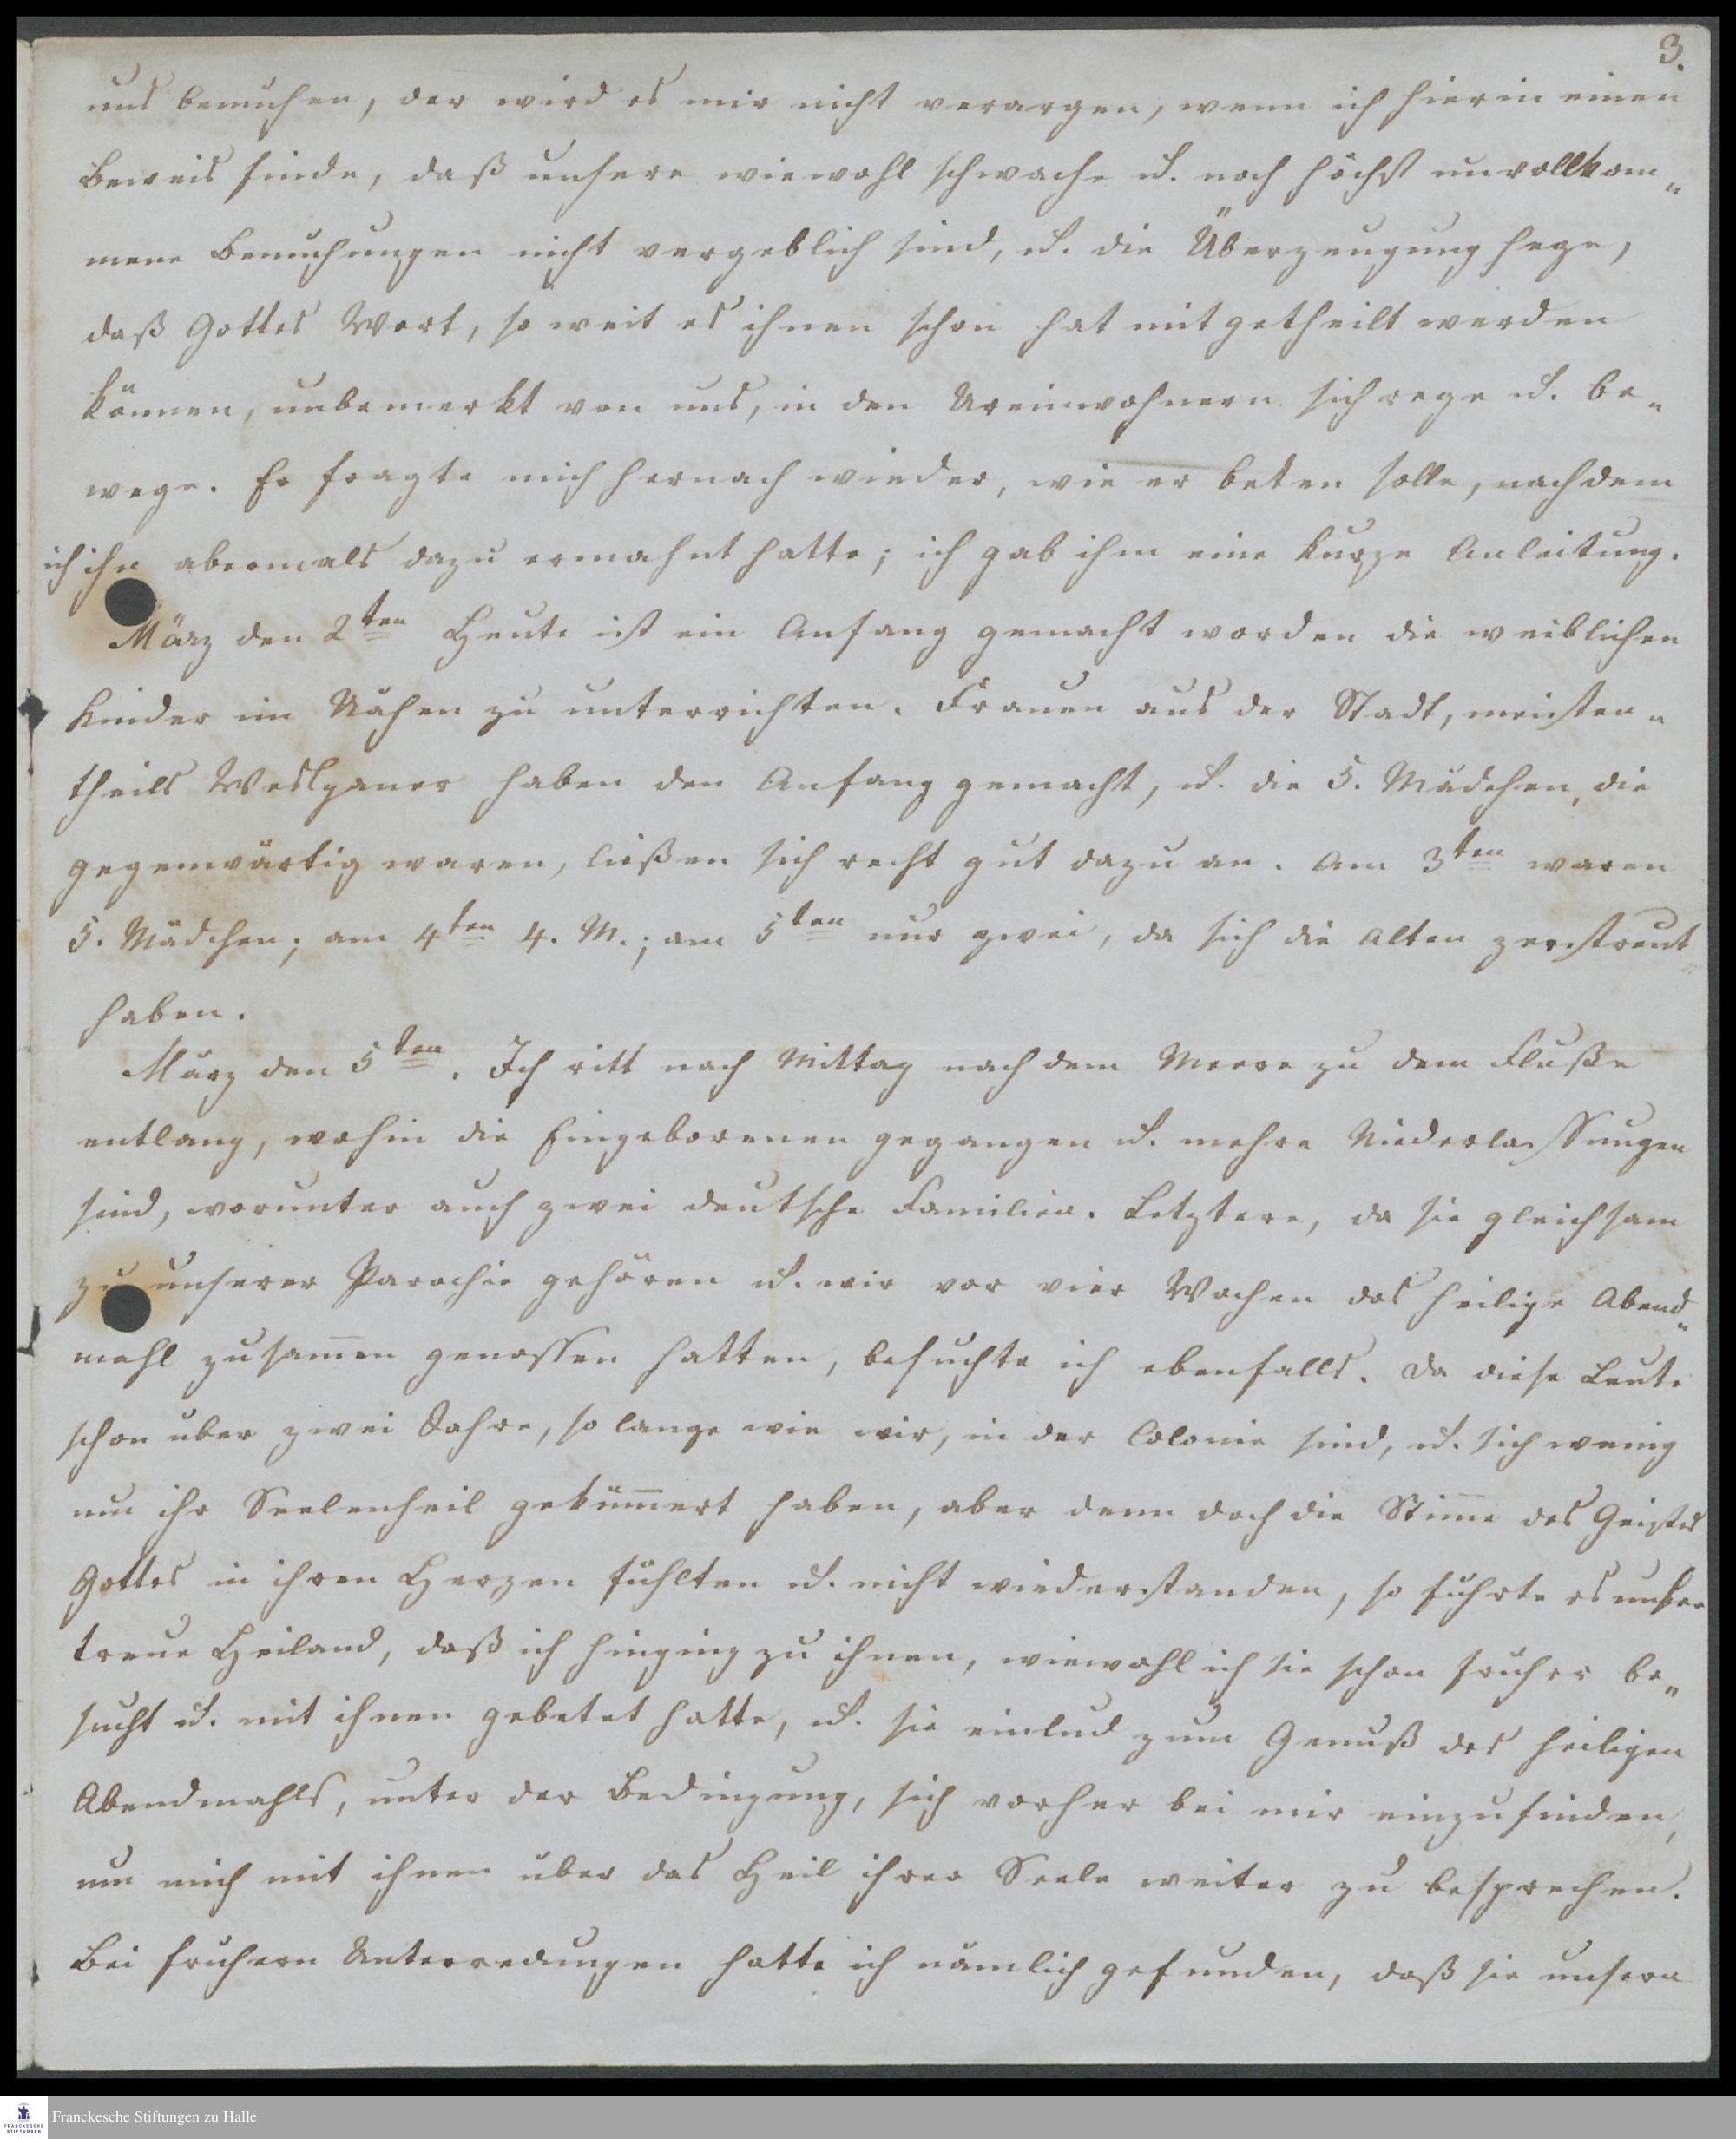 3.
uns bemühen, der wird es mir nicht verargen, wenn ich hierin einen
Beweis finde, daß unsere wiewohl schwache u. noch höchst unvollkom„
mene Bemühungen nicht vergeblich sind, u. die Überzeugung hege,
daß Gottes Wort, so weit es ihnen schon hat mitgetheilt werden
können, unbemerkt von uns, in den Ureinwohnern sich rege u. be„
wege. Er fragte mich hernach wieder, wie er beten solle, nachdem
ich ihn abermals dazu ermahnt hatte; ich gab ihm eine kurze Anleitung.
März den 2ten Heute ist ein Anfang gemacht worden die weiblichen
Kinder im Nähen zu unterrichten. Frauen aus der Stadt, meisten„
theils Weslyaner haben den Anfang gemacht, u. die 5. Mädchen, die
gegenwärtig waren, ließen sich recht gut dazu an. Am 3ten waren
5. Mädchen; am 4ten 4. M.; am 5ten nur zwei, da sich die Alten zerstreut
haben.
März den 5ten. Ich ritt nach Mittag nach dem Meere zu dem Fluße
entlang, wohin die Eingeborenen gegangen u. mehre Niederlassungen
sind, worunter auch zwei deutsche Familien. Letztere, da sie gleichsam
zu unserer Parochie gehören u. wir vor vier Wochen das heilige Abend„
mahl zusam̅en genossen hatten, besuchte ich ebenfalls. Da diese Leute
schon über zwei Jahre, so lange wie wir, in der Colonie sind, u. sich wenig
um ihr Seelenheil geküm̅ert haben, aber denn doch die Stim̅e des Geistes
Gottes in ihren Herzen fühlten u. nicht wiederstanden, so führte es unser
treue Heiland, daß ich hinging zu ihnen, wiewohl ich sie schon früher be„
sucht u. mit ihnen gebetet hatte, u. sie einlud zum Genuß des heiligen
Abendmahls, unter der Bedingung, sich vorher bei mir einzufinden,
um mich mit ihnen über das Heil ihrer Seele weiter zu besprechen.
Bei frühern Unterredungen hatte ich nämlich gefunden, daß sie unsern
Franckesche Stiftungen zu Halle
FRANCKESCHE
STIFTUNGEN